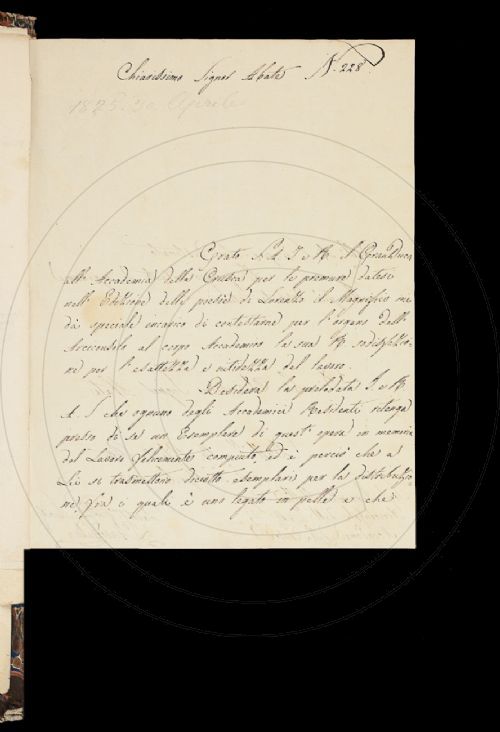 Chiarissimo Signor Abate N. 228
1825. 30 Aprile
Grato S. A. I. e R. il Gran Duca
all' Accademia della Crusca per le premure datesi
nell' Edizione delle poesie di Lorenzo il Magnifico mi
dà speciale incarico di contestarne per l' organo dell'
Arciconsolo al corpo Accademico la sua R. sodisfazio-
ne per l' esattezza e nitidezza del lavoro.
Desidera la prelodata I. e R.
A. S. che ognuno degli Accademici Residenti ritenga
presso di se un Esemplare di quest' opera in memoria
del Lavoro felicemente compiuto, ed è perciò che a
Lei si trasmettono diciotto esemplari per la distribuzio-
ne fra i quali è uno legato in pelle e che